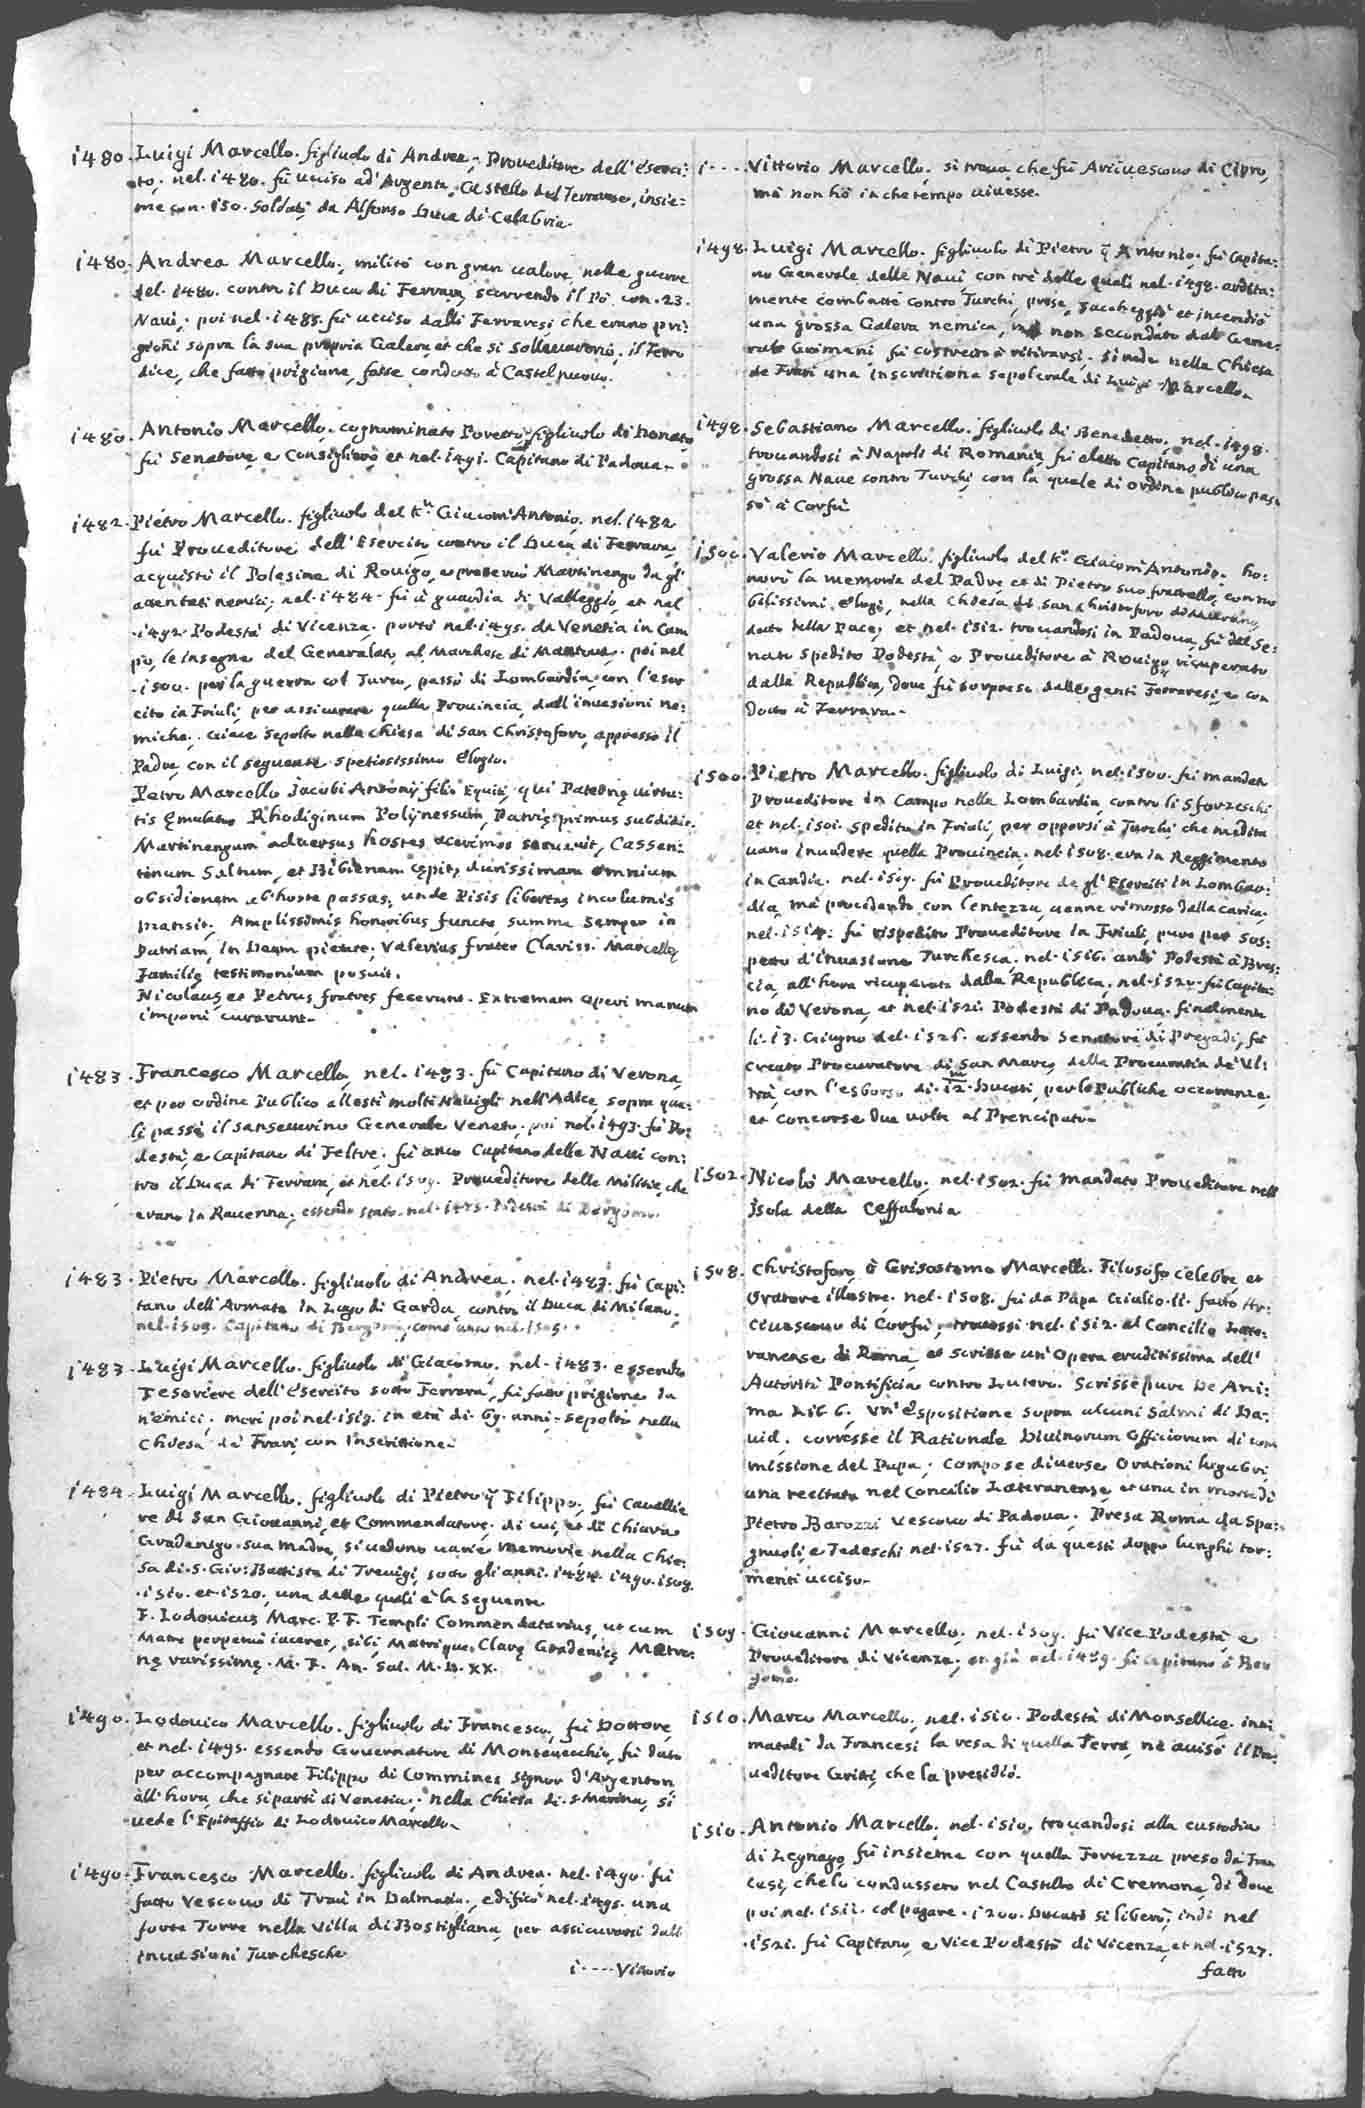 1480. Luigi Marcello. figliuolo di Andrea, Proueditore dell'Eserci:
to, nel. 1480. fù ucciso ad'Argenta, Castello del Ferrarese, insie:
me con. 150. Soldati da Alfonso Duca di Calabria.
1480. Andrea Marcello, militò con gran ualore nelle guerre
del. 1480. contro il Duca di Ferrara, scorrendo il Pò con. 23.
Naui, poi nel. 1485. fù ucciso dalli Ferraresi che erano pri:
gioni sopra la sua propria Galera, et che si solleuarono, il Ferro
dice, che fatto prigione, fosse condotto à Castel nuouo.
1480. Antonio Marcello. cognominato figliuolo di Donato
fù Senatore, e Consigliero et nel. 1491. Capitano di Padoua.
1482. Pietro Marcello. figliuolo del Kr. Giacom'Antonio, nel. 1482
fù Proueditore dell'Esercito contro il Duca di Ferrara,
acquistò il Polesine di Rouigo, e preseruò Martinengo da gl'
attentati nemici, nel. 1484. fù à guardia di Valleggio, et nel
.1492. Podestà di Vicenza. portò nel. 1495. da Venetia in Cam
po, le insegne del Generalato al Marchese di Mantoua. poi nel
.1500. per la guerra col Turco, passò di Lombardia con l'eser
cito in Friuli, per assicurare quella Prouincia, dall'inuasioni ne:
miche. Giace sepolto nella chiesa di San Christoforo, appresso il
Padre, con il seguente spetiosissimo Elogio.
Petro Marcello Jacobi Antonij filio Equiti, qui Paternę uirtu:
tis ęmulator Rhodiginum Polynessum, Patrię primus subdidit.
Martinengum aduersus hostes acerrimos seruauit, Cassen:
tinum Saltum, et Bibienam cepit, durissimam omnium
obsidionem ab hoste passus, unde Pisis libertas incolumis
mansit, Amplissimis honoribus functo, summa semper in
Patriam, in Deum pietate, Valerius frater Clariss. Marcellę
Familię testimonium posuit.
Nicolaus, et Petrus fratres fecerunt. Extremam operi manum
imponi curarunt.
1483. Francesco Marcello, nel. 1483. fù Capitano di Verona,
et per ordine Publico allestì molti Nauigli nell'Adice, sopra qua:
li passò il Sanseuerino Generale Veneto, poi nel. 1493. fù Po:
destà, e Capitano di Feltre. fù anco Capitano delle Naui con:
tro il Duca di Ferrara, et nel. 1509. Proueditore delle Militie, che
erano in Rauenna, essendo stato nel. Podestà di Bergomo.
1483. Pietro Marcello. figliuolo di Andrea, nel. 1483. fù Capi:
tano dell'Armata in Lago di Garda, contro il Duca di Milano.
nel. 1509. Capitano di Bergomo, come anco nel. 1505.
1483. Luigi Marcello. figliuolo di Giacomo, nel. 1483. essendo
Tesoriere dell'Esercito sotto Ferrara, fù fatto prigione da
nemici, morì poi nel. 1513. in età di. 69. anni, sepolto nella
Chiesa de Frari, con Inscrittione.
1484. Luigi Marcello, figliuolo di Pietro q. Filippo, fù Caualie
re di San Giouanni, et Commendatore. di cui, et di Chiara
Gradenigo sua madre, si uedono uarie memorie nella Chie:
sa di. S. Gio: Battista di Treuigi, sotto gli anni. 1484. 1490. 1509.
.1510. et. 1520. una delle quali è la seguente
F. Lodouicus Marc. P. F. Templi Commendatarius, ut cum
Matre perpetuò iaceret, sibi, Matrique, Clarę Gradenicę Matro:
nę rarissimę. M. F. An. Sal. M. D. XX.
1490. Lodouico Marcello. figliuolo di Francesco, fù Dottore,
et nel. 1495. essendo Gouernatore di Monteuecchio, fù dato
per accompagnare Filippo di Commines Signor d'Argenton,
all'hora, che si partì di Venetia, nella Chiesa di. S. Marina, si
uede l'Epitaffio di Lodouico Marcello.
1490. Francesco Marcello. figliuolo di Andrea. nel. 1490. fù
fatto Vescouo di Traù in Dalmatia, edificò nel. 1495. una
forte Torre nella Villa di Bostigliana, per assicurarsi dall
inuasioni Turchesche
1.... Vittorio
1.... Vittorio Marcello. si troua che fù Arciuescouo di Cipro,
mà non hò in che tempo uiuesse.
1498. Luigi Marcello. figliuolo di Pietro q. Antonio, fù Capita:
no Generale delle Naui con tre delle quali nel. 1498. ardita:
mente combattè contro Turchi, prese, saccheggiò et incendiò
una grossa Galera nemica, mà non secondato dal Gene:
rale Grimani fù costretto à ritirarsi, si uede nella Chiesa
de Frari una inscrittione sepolcrale di Luigi Marcello.
1498. Sebastiano Marcello. figliuolo di Benedetto, nel. 1498.
trouandosi à Napoli di Romania, fù eletto Capitano di una
grossa Naue contro Turchi, con la quale di ordine publico pas:
sò à Corfù.
1500. Valerio Marcello. figliuolo del Kr. Giacom'Antonio. ho:
norò la memoria del Padre, et di Pietro suo fratello, con no
bilissimi elogi, nella Chiesa di San Christoforo di Murano,
detto della Pace, et nel. 1512. trouandosi in Padoua, fù dal Se:
nato spedito Podestà, e Proueditore à Rouigo, ricuperato
dalla Republica, doue fù sorpreso dalle genti Ferraresi, e con
dotto à Ferrara.
1500. Pietro Marcello. figliuolo di Luigi, nel. 1500. fù mandato
Proueditore in Campo nella Lombardia, contro li Sforzeschi
et nel. 1501. spedito in Friuli, per opporsi à Turchi che medita
uano inuadere quella Prouincia. nel. 1508. era in Reggimento
in Candia. nel. 1519. fù Proueditore de gl'Eserciti in Lombar:
dia, mà procedendo con lentezza, uenne rimosso dalla carica.
nel. 1514. fù rispedito Proueditore in Friuli, pure per sos:
petto d'inuasione Turchesca. nel. 1516. andò Podestà à Bres:
cia, all'hora ricuperata dalla Republica. nel. 1520. fù Capita:
no di Verona, et nel. 1521. Podestà di Padoua. finalmente
li. 13. Giugno del. 1526. essendo Senatore di Pregadi, fù
creato Procuratore di San Marco della Procuratia de Vl:
trà, con l'esborso di. 12. m Ducati, per le Publiche occorrenze,
et concorse due uolte al Prencipato.
1502. Nicolò Marcello, nel. 1502. fù mandato Proueditore nell
Isola della Ceffalonia
1508. Christoforo, ò Grisostomo Marcello. Filosofo celebre, et
Oratore illustre. nel. 1508. fù da Papa Giulio. ii. fatto Ar:
ciuescouo di Corfù, trouossi nel. 1512. al Concilio Late:
ranense di Roma, et scrisse un'Opera eruditissima dell'
Autorità Pontificia contro Lutero. Scrisse pure De Ani:
ma Lib. 6. Vn'esposizione sopra alcuni Salmi di Da:
uid. corresse il Rationale Diuinorum Officiorum di com
missione del Papa. Compose diuerse Orationi lugubri,
una recitata nel Concilio Lateranense, et una in morte di
Pietro Barozzi Vescouo di Padoua. Presa Roma da Spa:
gnuoli, e Tedeschi nel. 1527. fù da questi doppo lunghi tor:
menti ucciso.
1509. Giouanni Marcello, nel. 1509. fù Vice Podestà e
Proueditore di Vicenza, et già nel. 1489. fù Capitano à Ber
gomo.
1510. Marco Marcello, nel. 1510. Podestà di Monselice, inti
matali da Francesi la resa di quella Terra, ne auisò il Pro:
ueditore Gritti, che la presidiò.
1510. Antonio Marcello, nel. 1510. trouandosi alla custodia
di Legnago, fù insieme con quella Fortezza preso da Fran
cesi, che lo condussero nel Castello di Cremona, di doue
poi nel. 1511. col pagare. 1200. Ducati si liberò, indi nel
.1521. fù Capitano, e Vice Podestà di Vicenza, et nel. 1527.
fatto